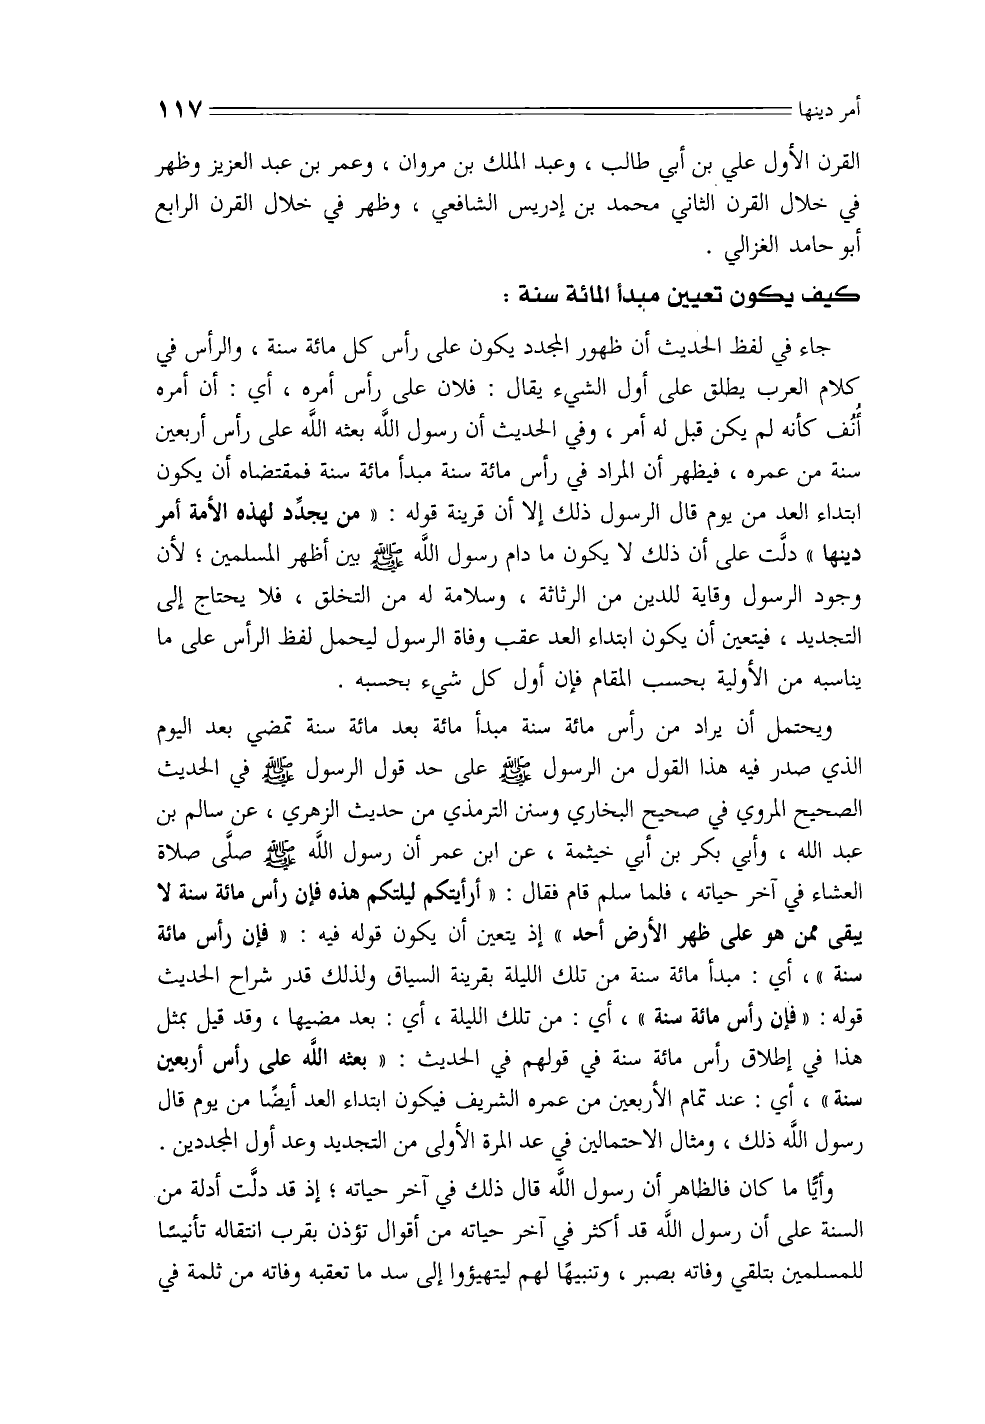 أمر دينها ١١٧
القرن الأول علي بن أبي طالب ، وعبد الملك بن مروان ، وعمر بن عبد العزيز وظهر
في خلال القرن الثاني محمد بن إدريس الشافعي ، وظهر في خلال القرن الرابع
أبو حامد الغزالي .
كيف يكون تعيين مبدأ المائة سنة :
جاء في لفظ الحديث أن ظهور المجدد يكون على رأس كل مائة سنة ، والرأس في
كلام العرب يطلق على أول الشيء يقال : فلان على رأس أمره ، أي : أن أمره
أُنُف كأنه لم يكن قبل له أمر ، وفي الحديث أن رسول اللَّه بعثه اللَّه على رأس أربعين
سنة من عمره ، فيظهر أن المراد في رأس مائة سنة مبدأ مائة سنة فمقتضاه أن يكون
ابتداء العد من يوم قال الرسول ذلك إلا أن قرينة قوله : « من يجدِّد لهذه الأمة أمر
دينها » دلَّت على أن ذلك لا يكون ما دام رسول اللَّه ﷺ بين أظهر المسلمين ؛ لأن
وجود الرسول وقاية للدين من الرثاثة ، وسلامة له من التخلق ، فلا يحتاج إلى
التجديد ، فيتعين أن يكون ابتداء العد عقب وفاة الرسول ليحمل لفظ الرأس على ما
يناسبه من الأولية بحسب المقام فإن أول كل شيء بحسبه .
ويحتمل أن يراد من رأس مائة سنة مبدأ مائة بعد مائة سنة تمضي بعد اليوم
الذي صدر فيه هذا القول من الرسول ﷺ على حد قول الرسول ﷺ في الحديث
الصحيح المروي في صحيح البخاري وسنن الترمذي من حديث الزهري ، عن سالم بن
عبد الله ، وأبي بكر بن أبي خيثمة ، عن ابن عمر أن رسول اللَّه ﷺ صلَّى صلاة
العشاء في آخر حياته ، فلما سلم قام فقال : « أرأيتكم ليلتكم هذه فإن رأس مائة سنة لا
يبقى ممن هو على ظهر الأرض أحد » إذ يتعين أن يكون قوله فيه : « فإن رأس مائة
سنة » ، أي : مبدأ مائة سنة من تلك الليلة بقرينة السياق ولذلك قدر شراح الحديث
قوله : « فإن رأس مائة سنة » ، أي : من تلك الليلة ، أي : بعد مضيها ، وقد قيل بمثل
هذا في إطلاق رأس مائة سنة في قولهم في الحديث : « بعثه اللَّه على رأس أربعين
سنة » ، أي : عند تمام الأربعين من عمره الشريف فيكون ابتداء العد أيضًا من يوم قال
رسول اللَّه ذلك ، ومثال الاحتمالين في عد المرة الأولى من التجديد وعد أول المجددين .
وأيًّا ما كان فالظاهر أن رسول اللَّه قال ذلك في آخر حياته ؛ إذ قد دلَّت أدلة من
السنة على أن رسول اللَّه قد أكثر في آخر حياته من أقوال تؤذن بقرب انتقاله تأنيسًا
للمسلمين بتلقي وفاته بصبر ، وتنبيهًا لهم ليتهيؤوا إلى سد ما تعقبه وفاته من ثلمة في